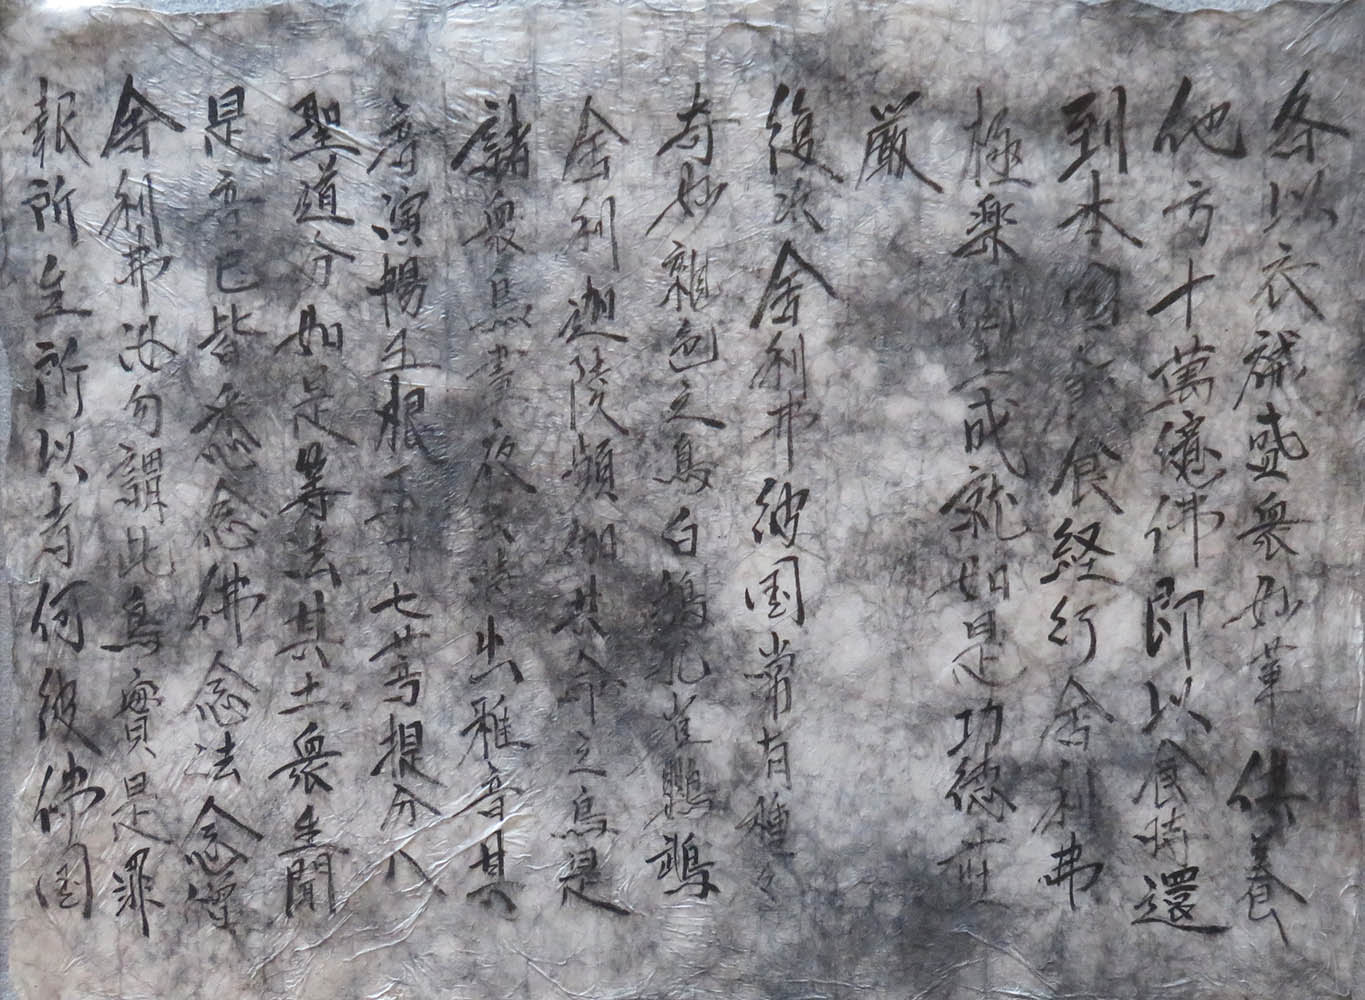 各以衣裓盛衆妙華供養
他方十萬億佛即以食時還
到本国飯食経行舎利弗
極楽国土成就如是功徳荘
厳
復次舎利弗彼国常有種々
奇妙雜色之鳥白鵠孔雀鸚鵡
舎利迦陵頻伽共命之鳥是
諸衆鳥晝夜六時出雅音其
音演暢五根五力七菩提分八
聖道分如是等法其土衆生聞
是音已皆悉念佛念法念僧
舎利弗汝勿謂此鳥實是罪
報所生所以者何彼佛国